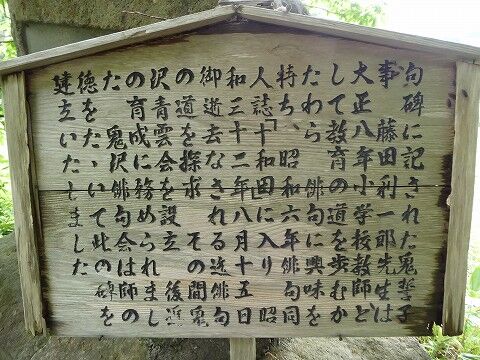 句碑に記された鬼誓子
事、藤田利一郎先生は
大正八年小学校教師と
して教育の道を歩むか
たわら、俳句に興味を
持ち、昭和六年俳句同
人誌「十和田」に入り、昭
和三十二年八月十五日
御逝去なされる迄俳句
の道を探求、その間鬼
沢青雲会を設立、後進
の育成に務められまし
た。鬼沢俳句会は師の
徳をたゝいて此の碑を
建立いたしました